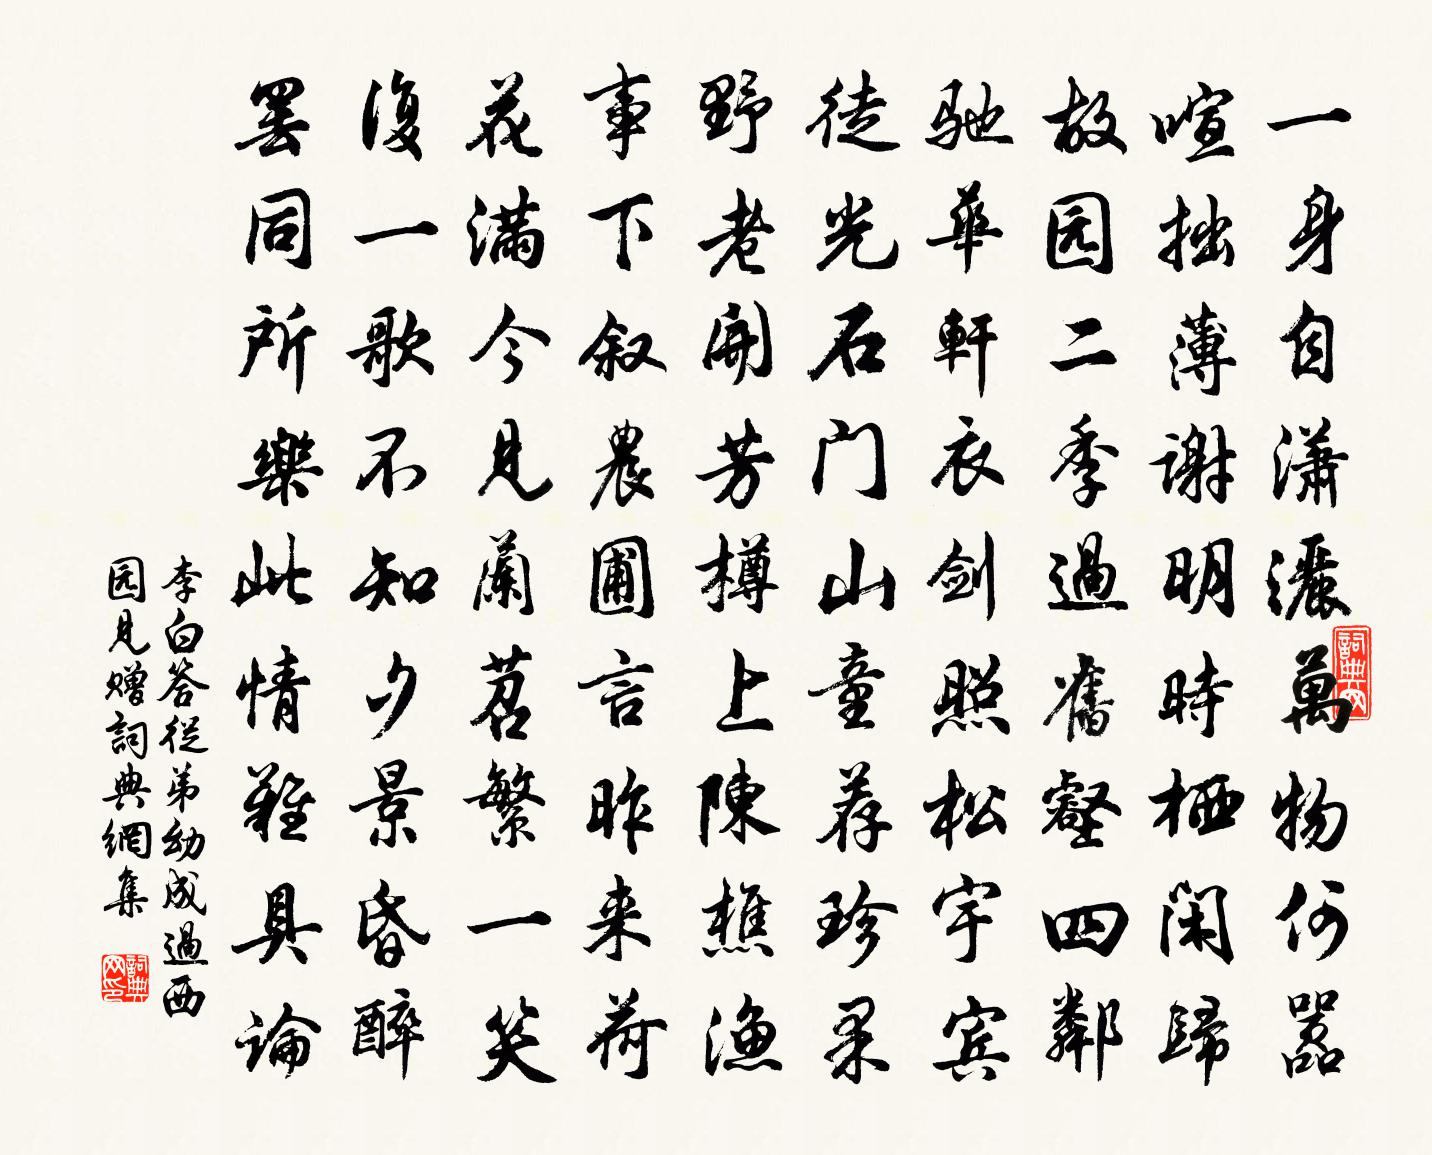 一身自瀟灑萬物何囂
喧拙薄谢明時栖闲歸
故园二季過舊壑四鄰
驰華軒衣剑照松宇宾
徒光石门山童荐珍果
野老開芳樽上陳樵漁
事下叙農圃言昨来荷
花滿今見蘭苕繁一笑
復一歌不知夕景昏醉
罢同所樂此情難具論
李白答從弟幼成過西
园見赠詞典網集
詞典网
詞典网印